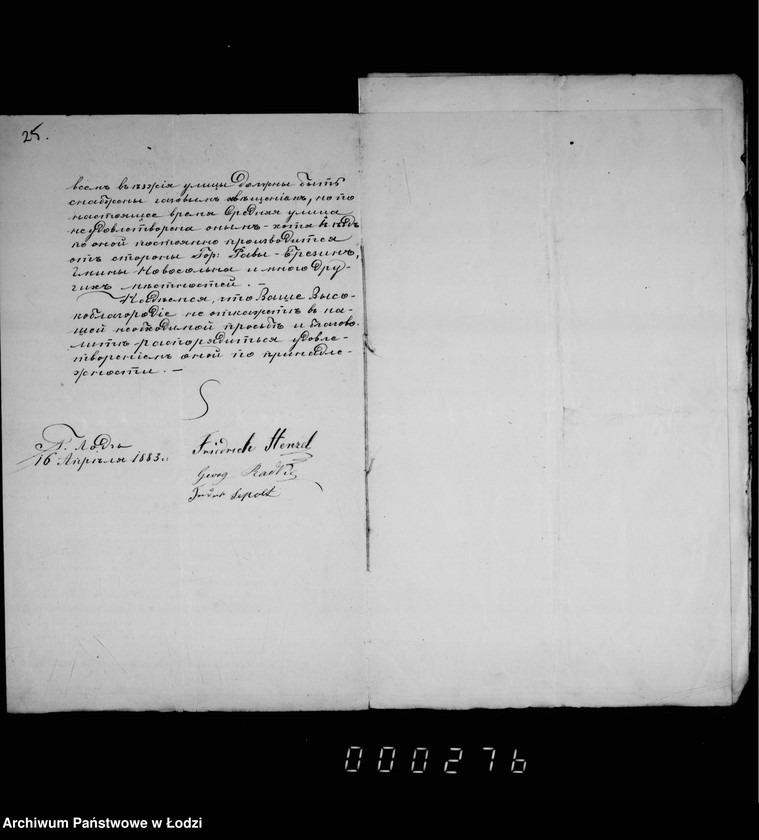 25.
всемъ въѣзжія улицы должны быть
снабжены газовымъ освѣщеніемъ, но по
настоящее время Средняя улица
не удовлетворена онымъ - хотя и ѣзда
по оной постоянно производится
отъ стороны Гор: Равы - Брезинъ,
Гмины Новосольна и много дру-
гихъ мѣстностей. -
Надѣемся, что Ваше Высо-
коблагородіе не откажетъ въ на-
шей необходимой просьбѣ и благово-
литъ распорядиться удовле-
твореніемъ оной по принадле-
жности. -
Г. Лодзь
16 Апрѣля 1883 г.
Fridrich Henzel
Georg
000276
Archiwum Państwowe w Łodzi